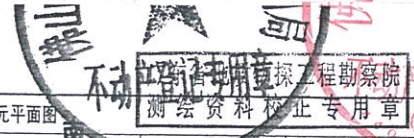 佛山
局
不动产登记专用章
探工程勘察院
测绘资料校正专用章
元平面图